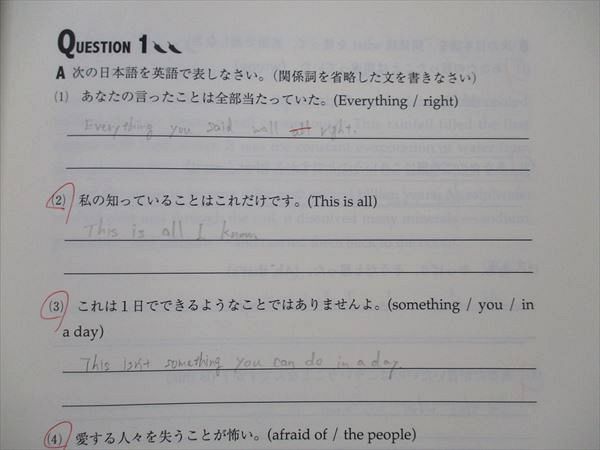 QUESTION 1
A 次の日本語を英語で表しなさい。(関係詞を省略した文を書きなさい)
(1) あなたの言ったことは全部当たっていた。(Everything / right)
Everything you said wall all right.
(2) 私の知っていることはこれだけです。(This is all)
This is all I know
(3) これは1日でできるようなことではありませんよ。(something / you / in
a day)
This isn't something you can do in a day.
(4) 愛する人々を失うことが怖い。(afraid of / the people)